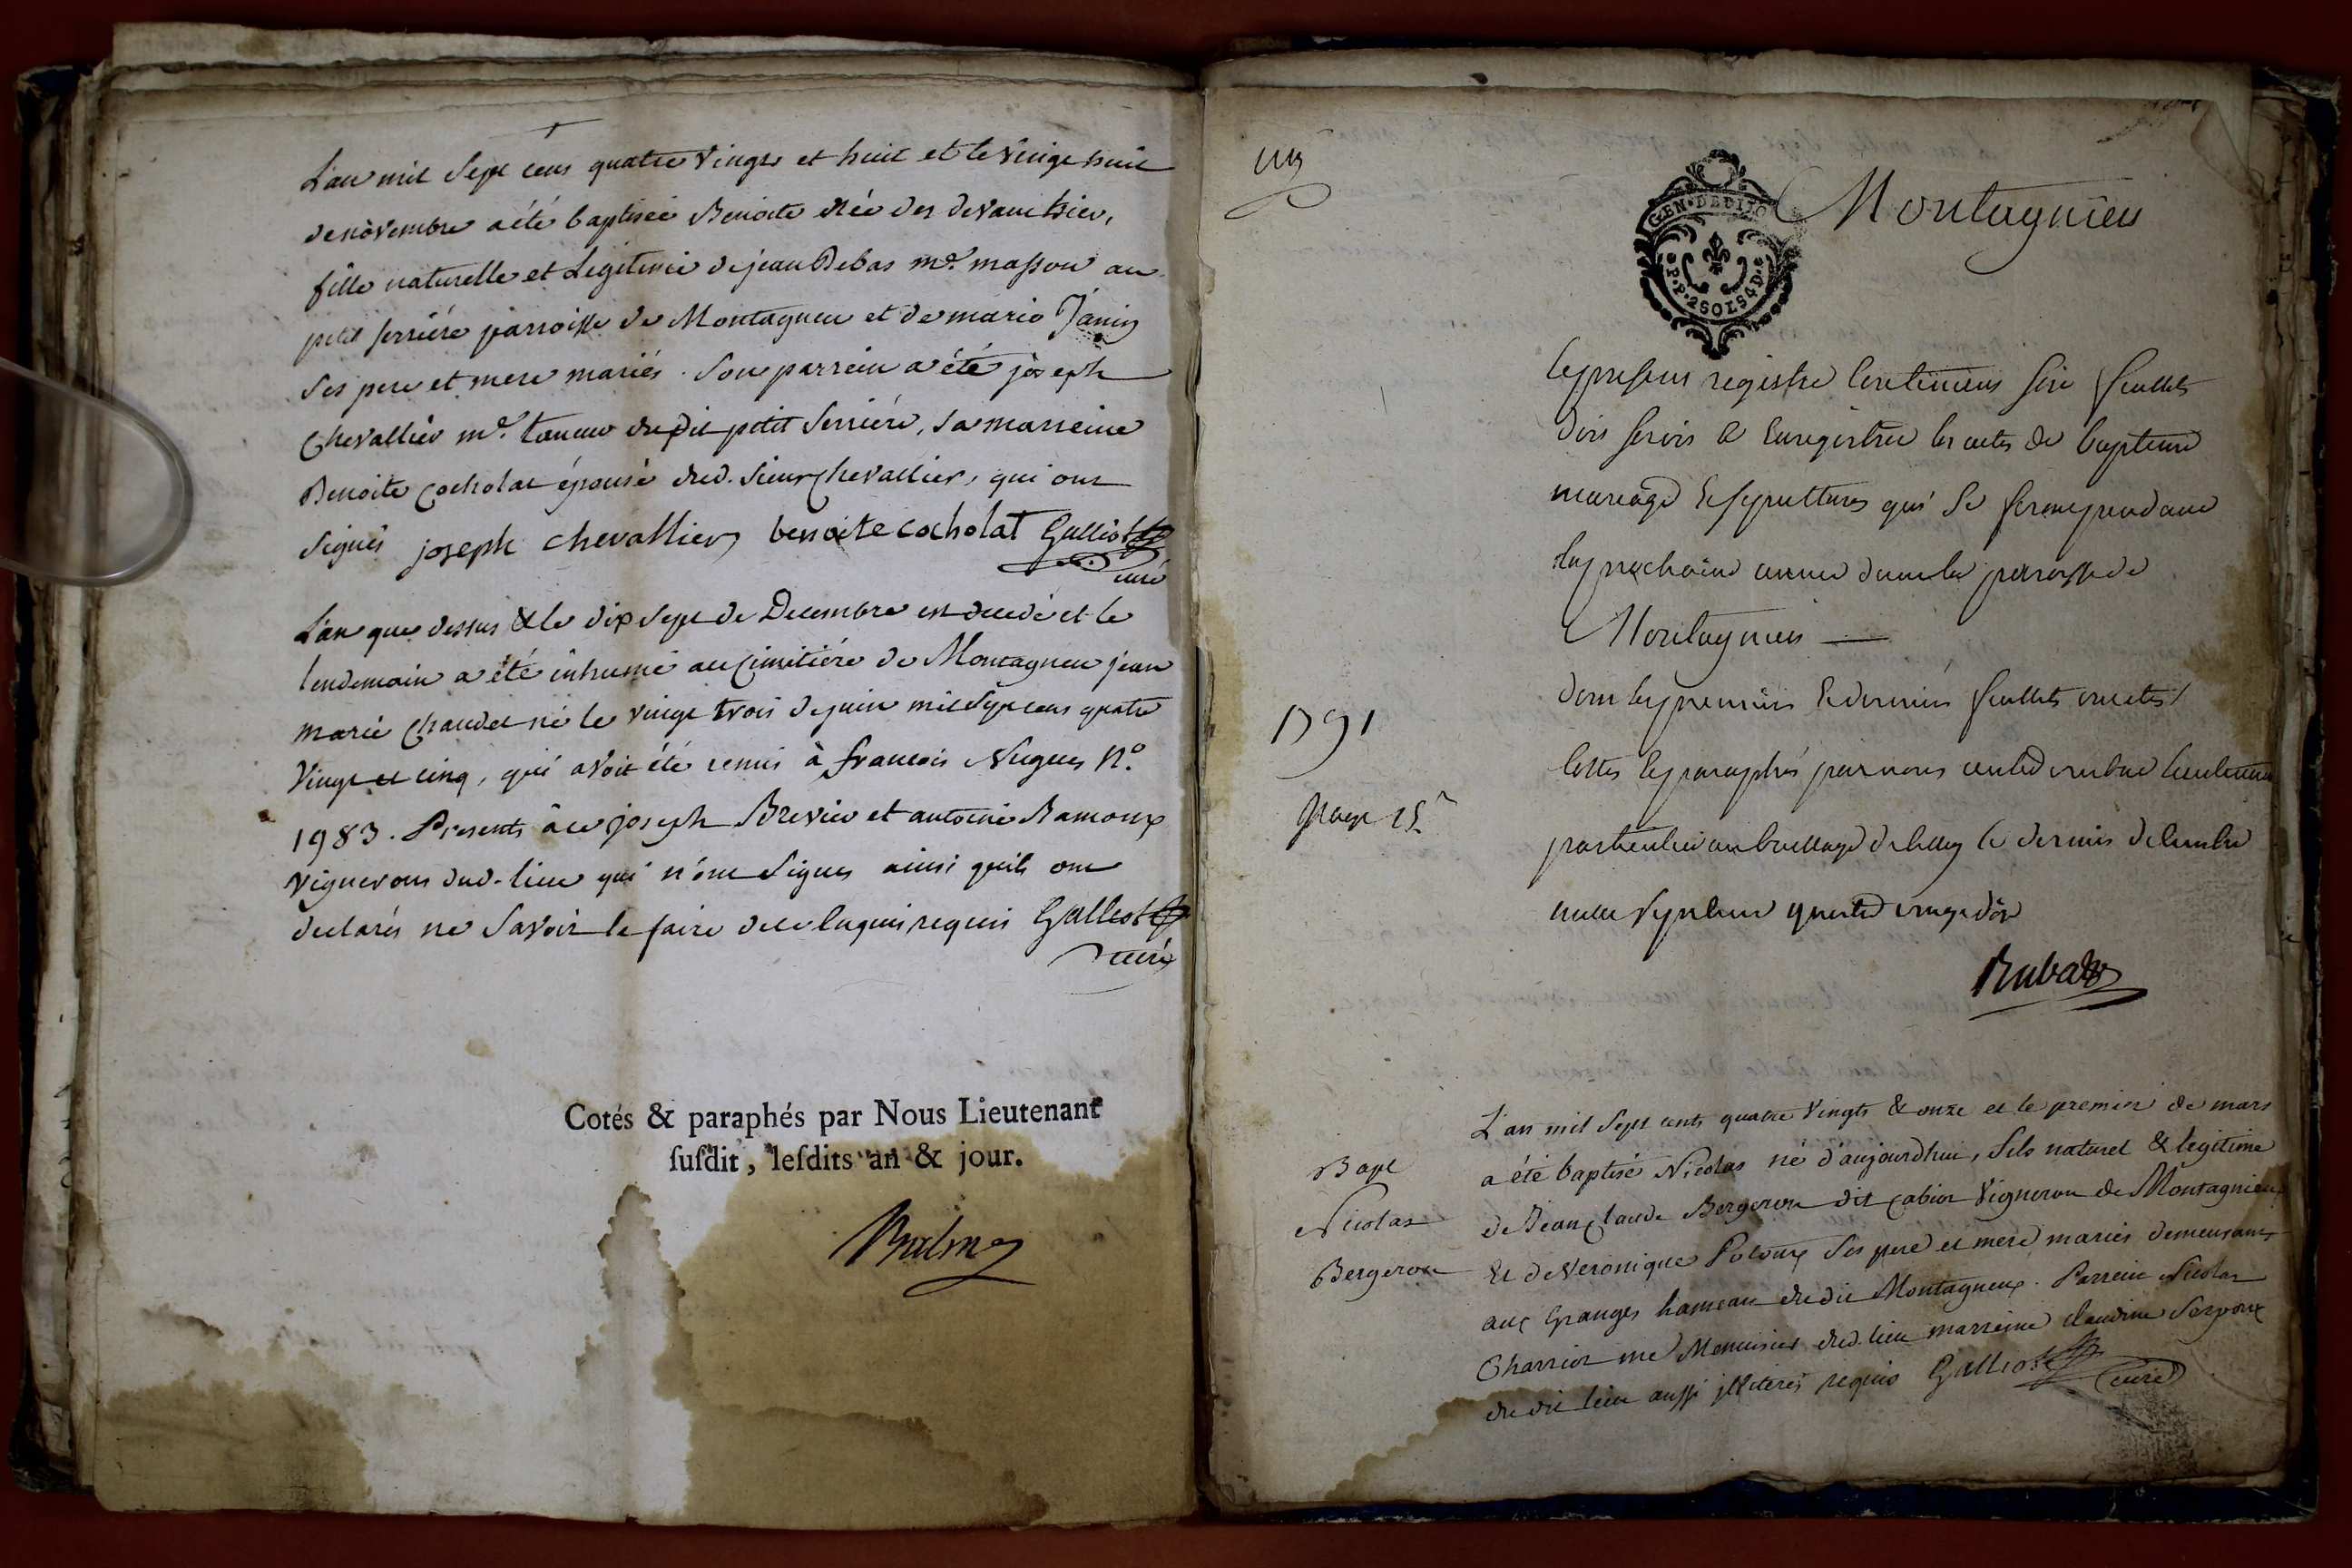 L'an mil Sept cens quatre Vingts et huit et le Vingt huit
de novembre a été baptisée Benoite née des devant hier,
fille naturelle et Legitimé de jean Debas me. masson au
petit serriére parroisse de Montagneu et de marie Janin
Ses pere et mere mariés. Son parrein a été joseph
Chevallier me. taneur du dit petit Serriére, sa marreine
Benoite Cocholat épouse dud. sieur Chevallier, qui ont
Signés joseph chevallier benoite cocholat Galliot
curé
L'an que dessus & le dix Sept de Decembre est decedé et le
lendemain a été inhumé au Cimitiére de Montagneu jean
marie Chaudet né le vingt trois de juin mil Sept cens quatre
Vingt et cinq, qui avoit été remis à francois Nugues N°.
1983. Presents à ce joseph Brevier et antoine Ramoux
vignerons dud. lieu qui n'ont Signes ainsi qu'ils ont
declarés ne Savoir le faire de ce enquis requis Galliot
curé
Cotés & paraphés par Nous Lieutenant
ſuſdit, leſdits an & jour.
Balme
un
GEN. DE DIJO
P.P. 2 SOLS 4 D.
Montagnieu
le present registre Contenans feuillets
dois servir a Enregistrer les actes de bapteme
mariage & sepultures qui Se feront pendant
la prochaine année dans la paroisse de
Montagnieu —
dont les premiers & derniers feuillets ont etes
1791
cottes & paraphés par nous Lieutenant
Page 15
particulier au bailliage de belley le dernier decembre
mil sept cent quatre vingt dix
Rubat
L'an mil Sept cents quatre Vingts & onze et le premier de mars
Bapt
a été baptisé Nicolas né d'aujourdhui, fils naturel & legitime
Nicolas
de Jean Claude Bergeron dit cabiot Vigneron de Montagnieux
Bergeron
Et de Veronique Poloux Ses pere et mere mariés demeurants
aux Granges hameau du dit Montagneux. Parrein Nicolas
Charriot me Menuisier dud. lieu marreine claudine Serpoux
du dit lieu aussi illiterés requis Galliot curé